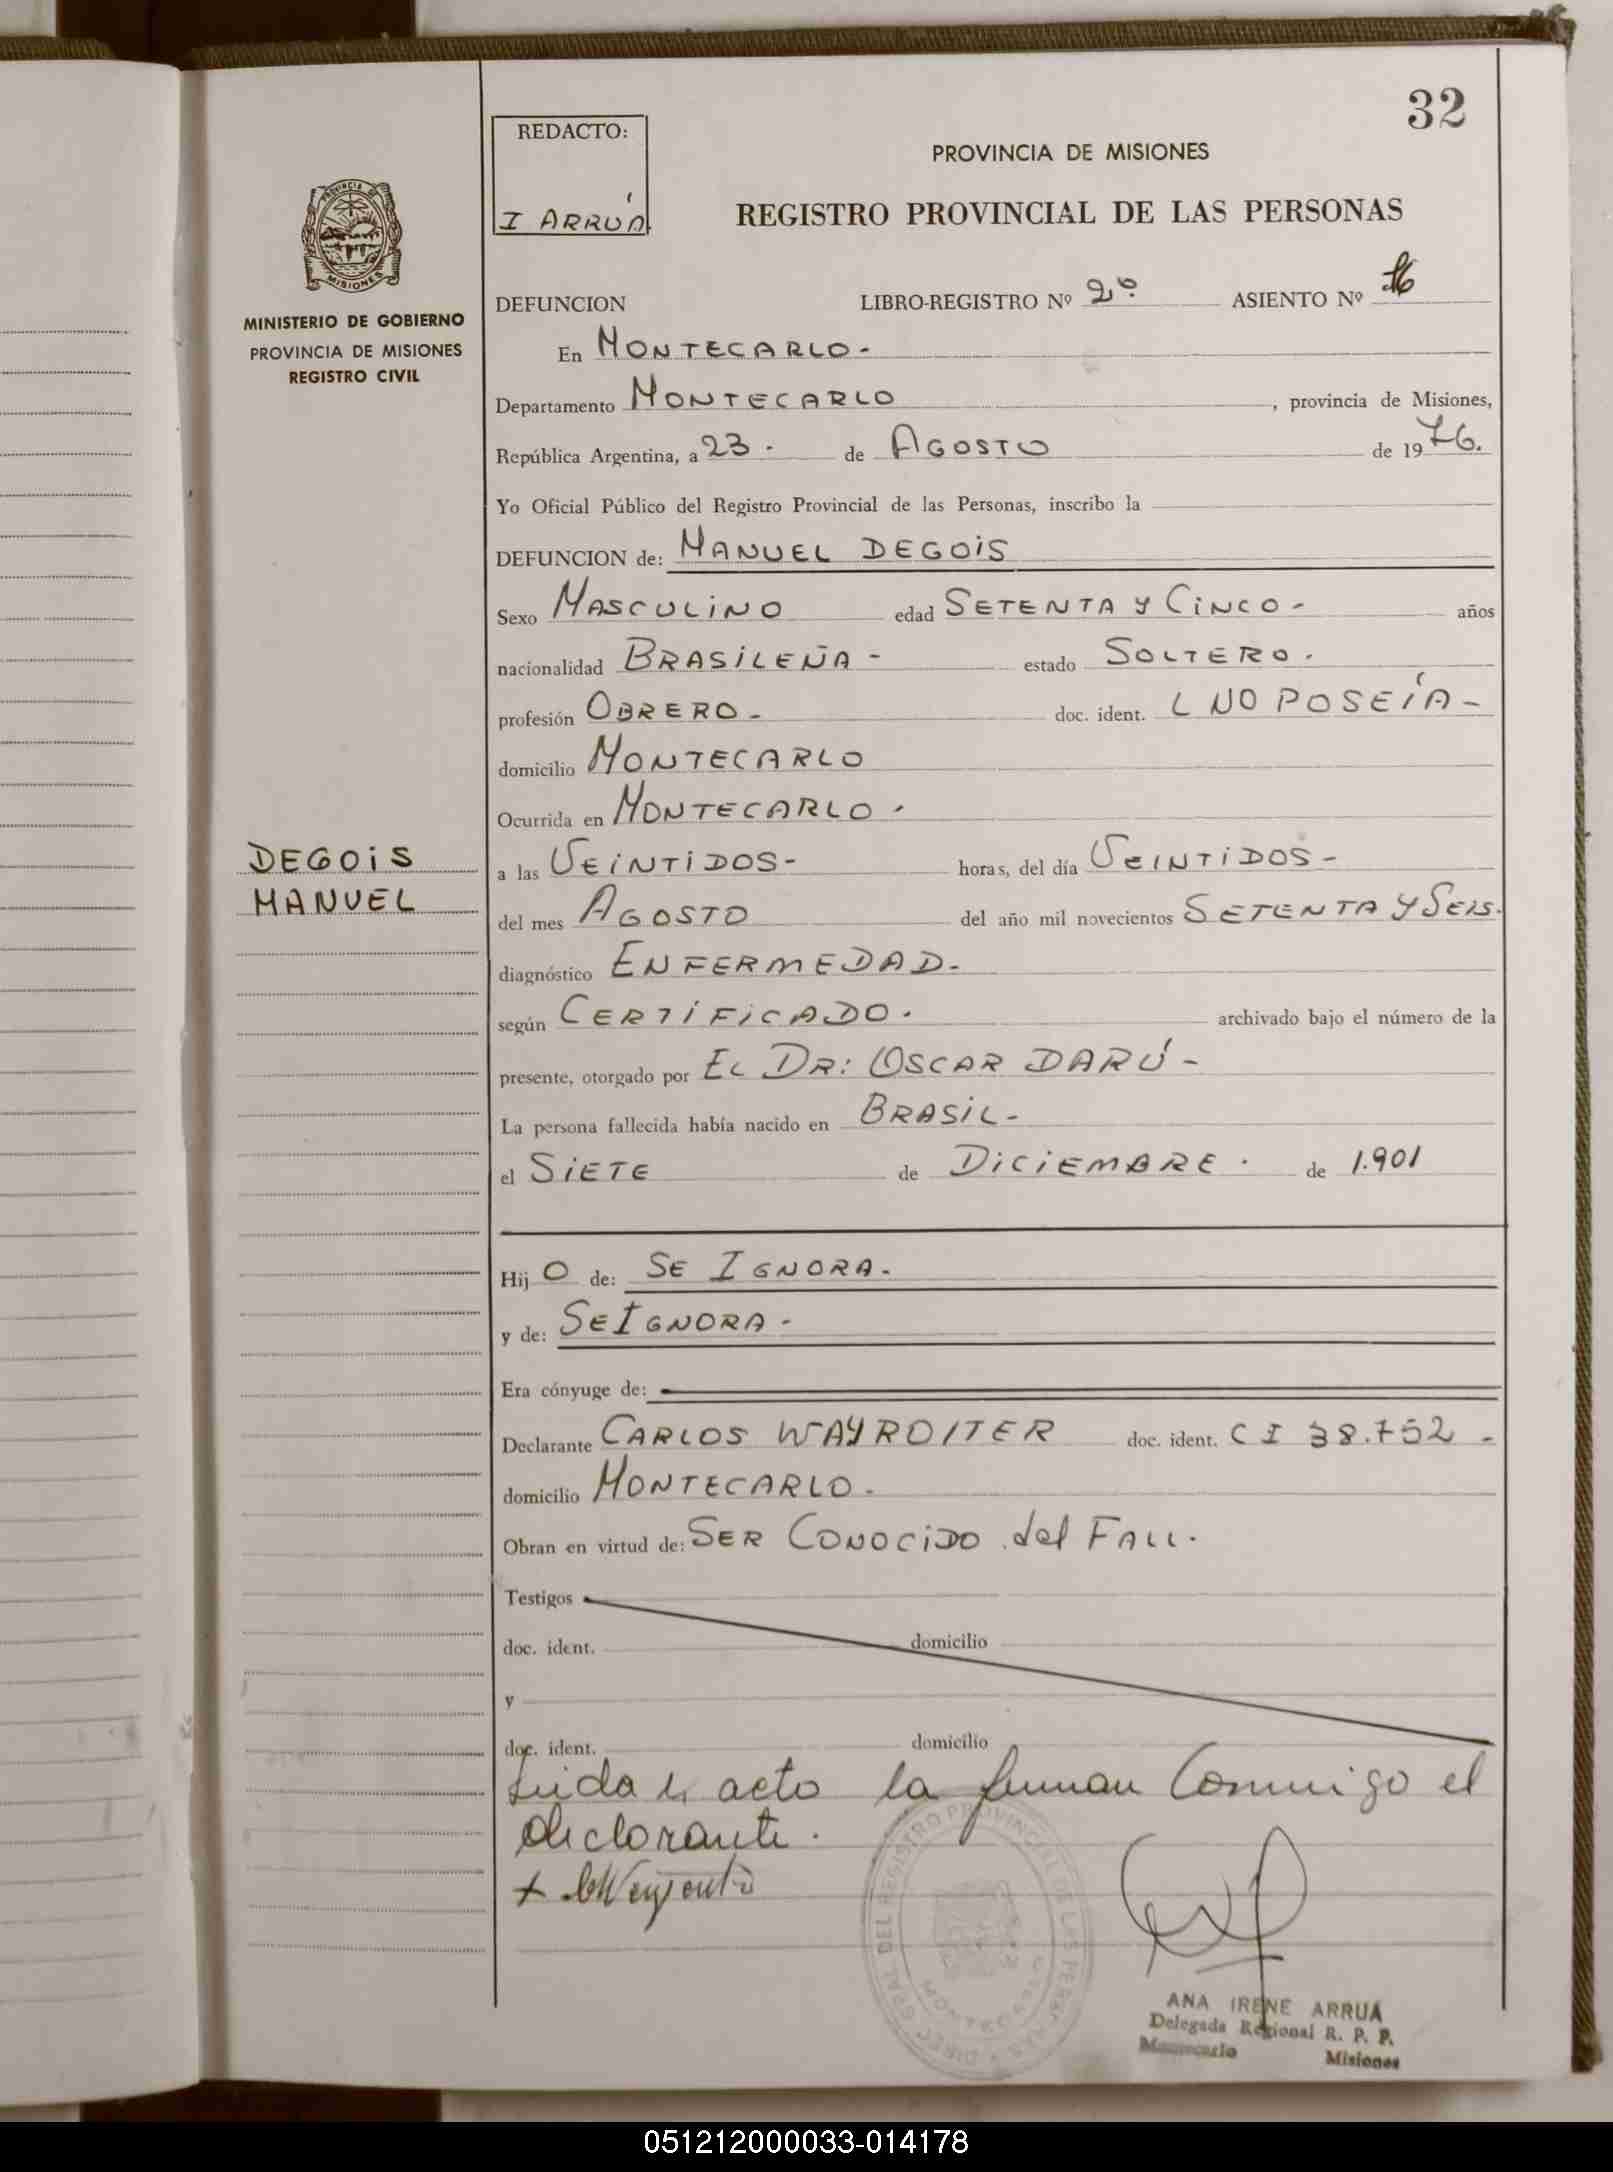 32
REDACTO:
I ARRÚA.
PROVINCIA DE MISIONES
REGISTRO PROVINCIAL DE LAS PERSONAS
PROVINCIA DE MISIONES
MINISTERIO DE GOBIERNO
PROVINCIA DE MISIONES
REGISTRO CIVIL
DEFUNCION LIBRO-REGISTRO Nº 2º. ASIENTO Nº
En MONTECARLO-
Departamento MONTECARLO, provincia de Misiones,
República Argentina, a 23. de AGOSTO de 1976.
Yo Oficial Público del Registro Provincial de las Personas, inscribo la
DEFUNCION de: MANUEL DEGOiS
Sexo MASCULiNO edad SETENTA Y CiNCO- años
nacionalidad BRASiLEÑA- estado SOLTERO.
profesión OBRERO- doc. ident. L NO POSEÍA-
domicilio MONTECARLO
Ocurrida en MONTECARLO.
DEGOiS
MANUEL
a las VEiNTiDOS- horas, del día VEINTiDOS-
del mes AGOSTO del año mil novecientos SETENTA Y SEIS.
diagnóstico ENFERMEDAD-
según CERTiFiCADO. archivado bajo el número de la
presente, otorgado por EL DR: OSCAR DARÚ-
La persona fallecida había nacido en BRASiL-
el SiETE de DiCiEMBRE. de 1.901
Hij O de: SE IGNORA.
y de: SE IGNORA-
Era cónyuge de:
Declarante CARLOS WAYROITER doc. ident. C I 38.752-
domicilio MONTECARLO-
Obran en virtud de: SER CONOCiDO del FALL.
Testigos
doc. ident. domicilio
y
doc. ident. domicilio
Leida el acto la firman Conmigo el
declarante.
ANA IRENE ARRUÁ
Delegada Regional R. P. P.
Montecarlo Misiones
051212000033-014178